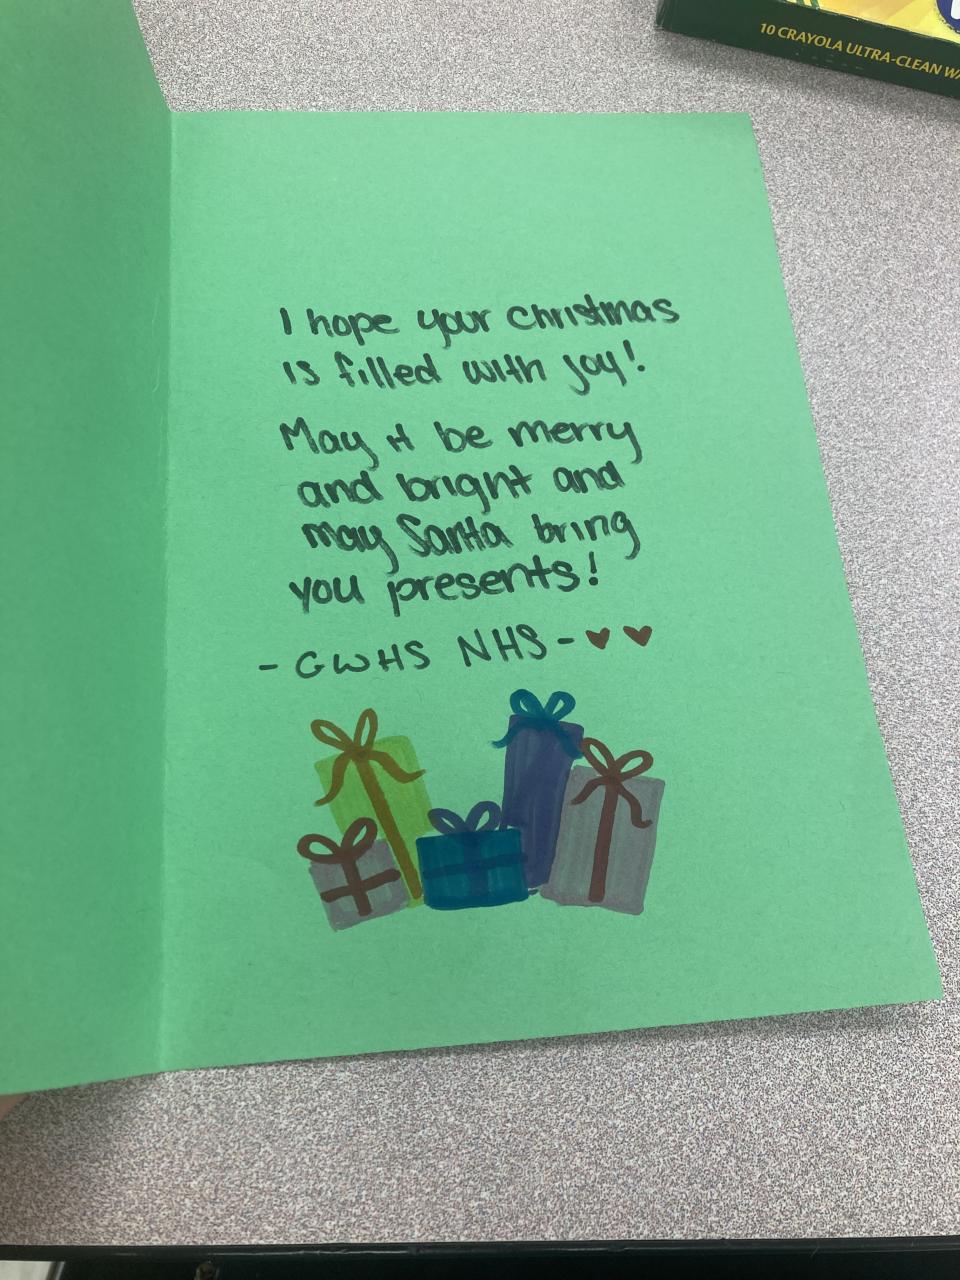 10 CRAYOLA ULTRA-CLEAN
I hope your christmas
is filled with joy!
May it be merry
and bright and
may Santa bring
you presents!
- GWHS NHS - ♥ ♥